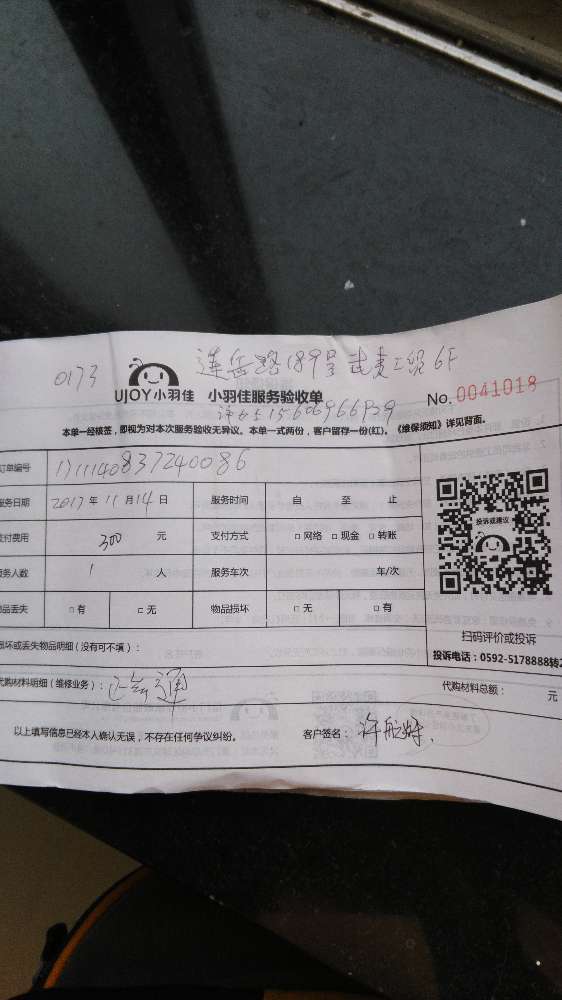 莲岳路189号武夷工贸6F
0173
UJOY小羽佳 小羽佳服务验收单 No.0041018
许女士
本单一经核签，即视为对本次服务验收无异议。本单一式两份，客户留存一份(红)。《维保须知》详见背面。
订单编号 1711140837240086
服务日期 2017年11月14日 服务时间 自 至 止
支付费用 300 元 支付方式 □网络 □现金 □转账
服务人数 1 人 服务车次 车/次
物品丢失 □有 □无 物品损坏 □无 □有
投诉或建议
扫码评价或投诉
投诉电话：0592-5178888转2
损坏或丢失物品明细（没有可不填）：
代购材料明细（维修业务）： 代购材料总额： 元
以上填写信息已经本人确认无误，不存在任何争议纠纷。 客户签名：